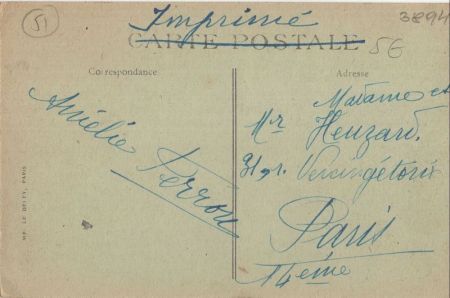 51
Imprimé
3894
CARTE POSTALE
5€
Correspondance
Adresse
Amélie
Perrou
Madame et
Mr Heuzard.
31, r. Vercingétorix
Paris
14ème
IMP. LE DELEY, PARIS